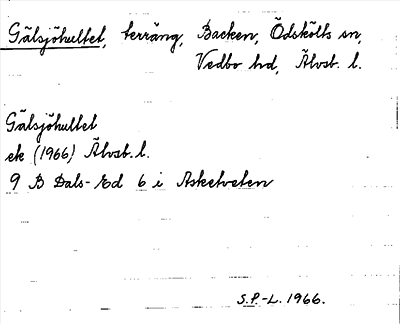 Gälsjöhultet, terräng, Backen, Ödskölts sn,
Vedbo hd, Älvsb. l.
Gälsjöhultet
ek (1966) Älvsb. l.
9 B Dals-Ed 6 i Asketveten
S.P.-L. 1966.